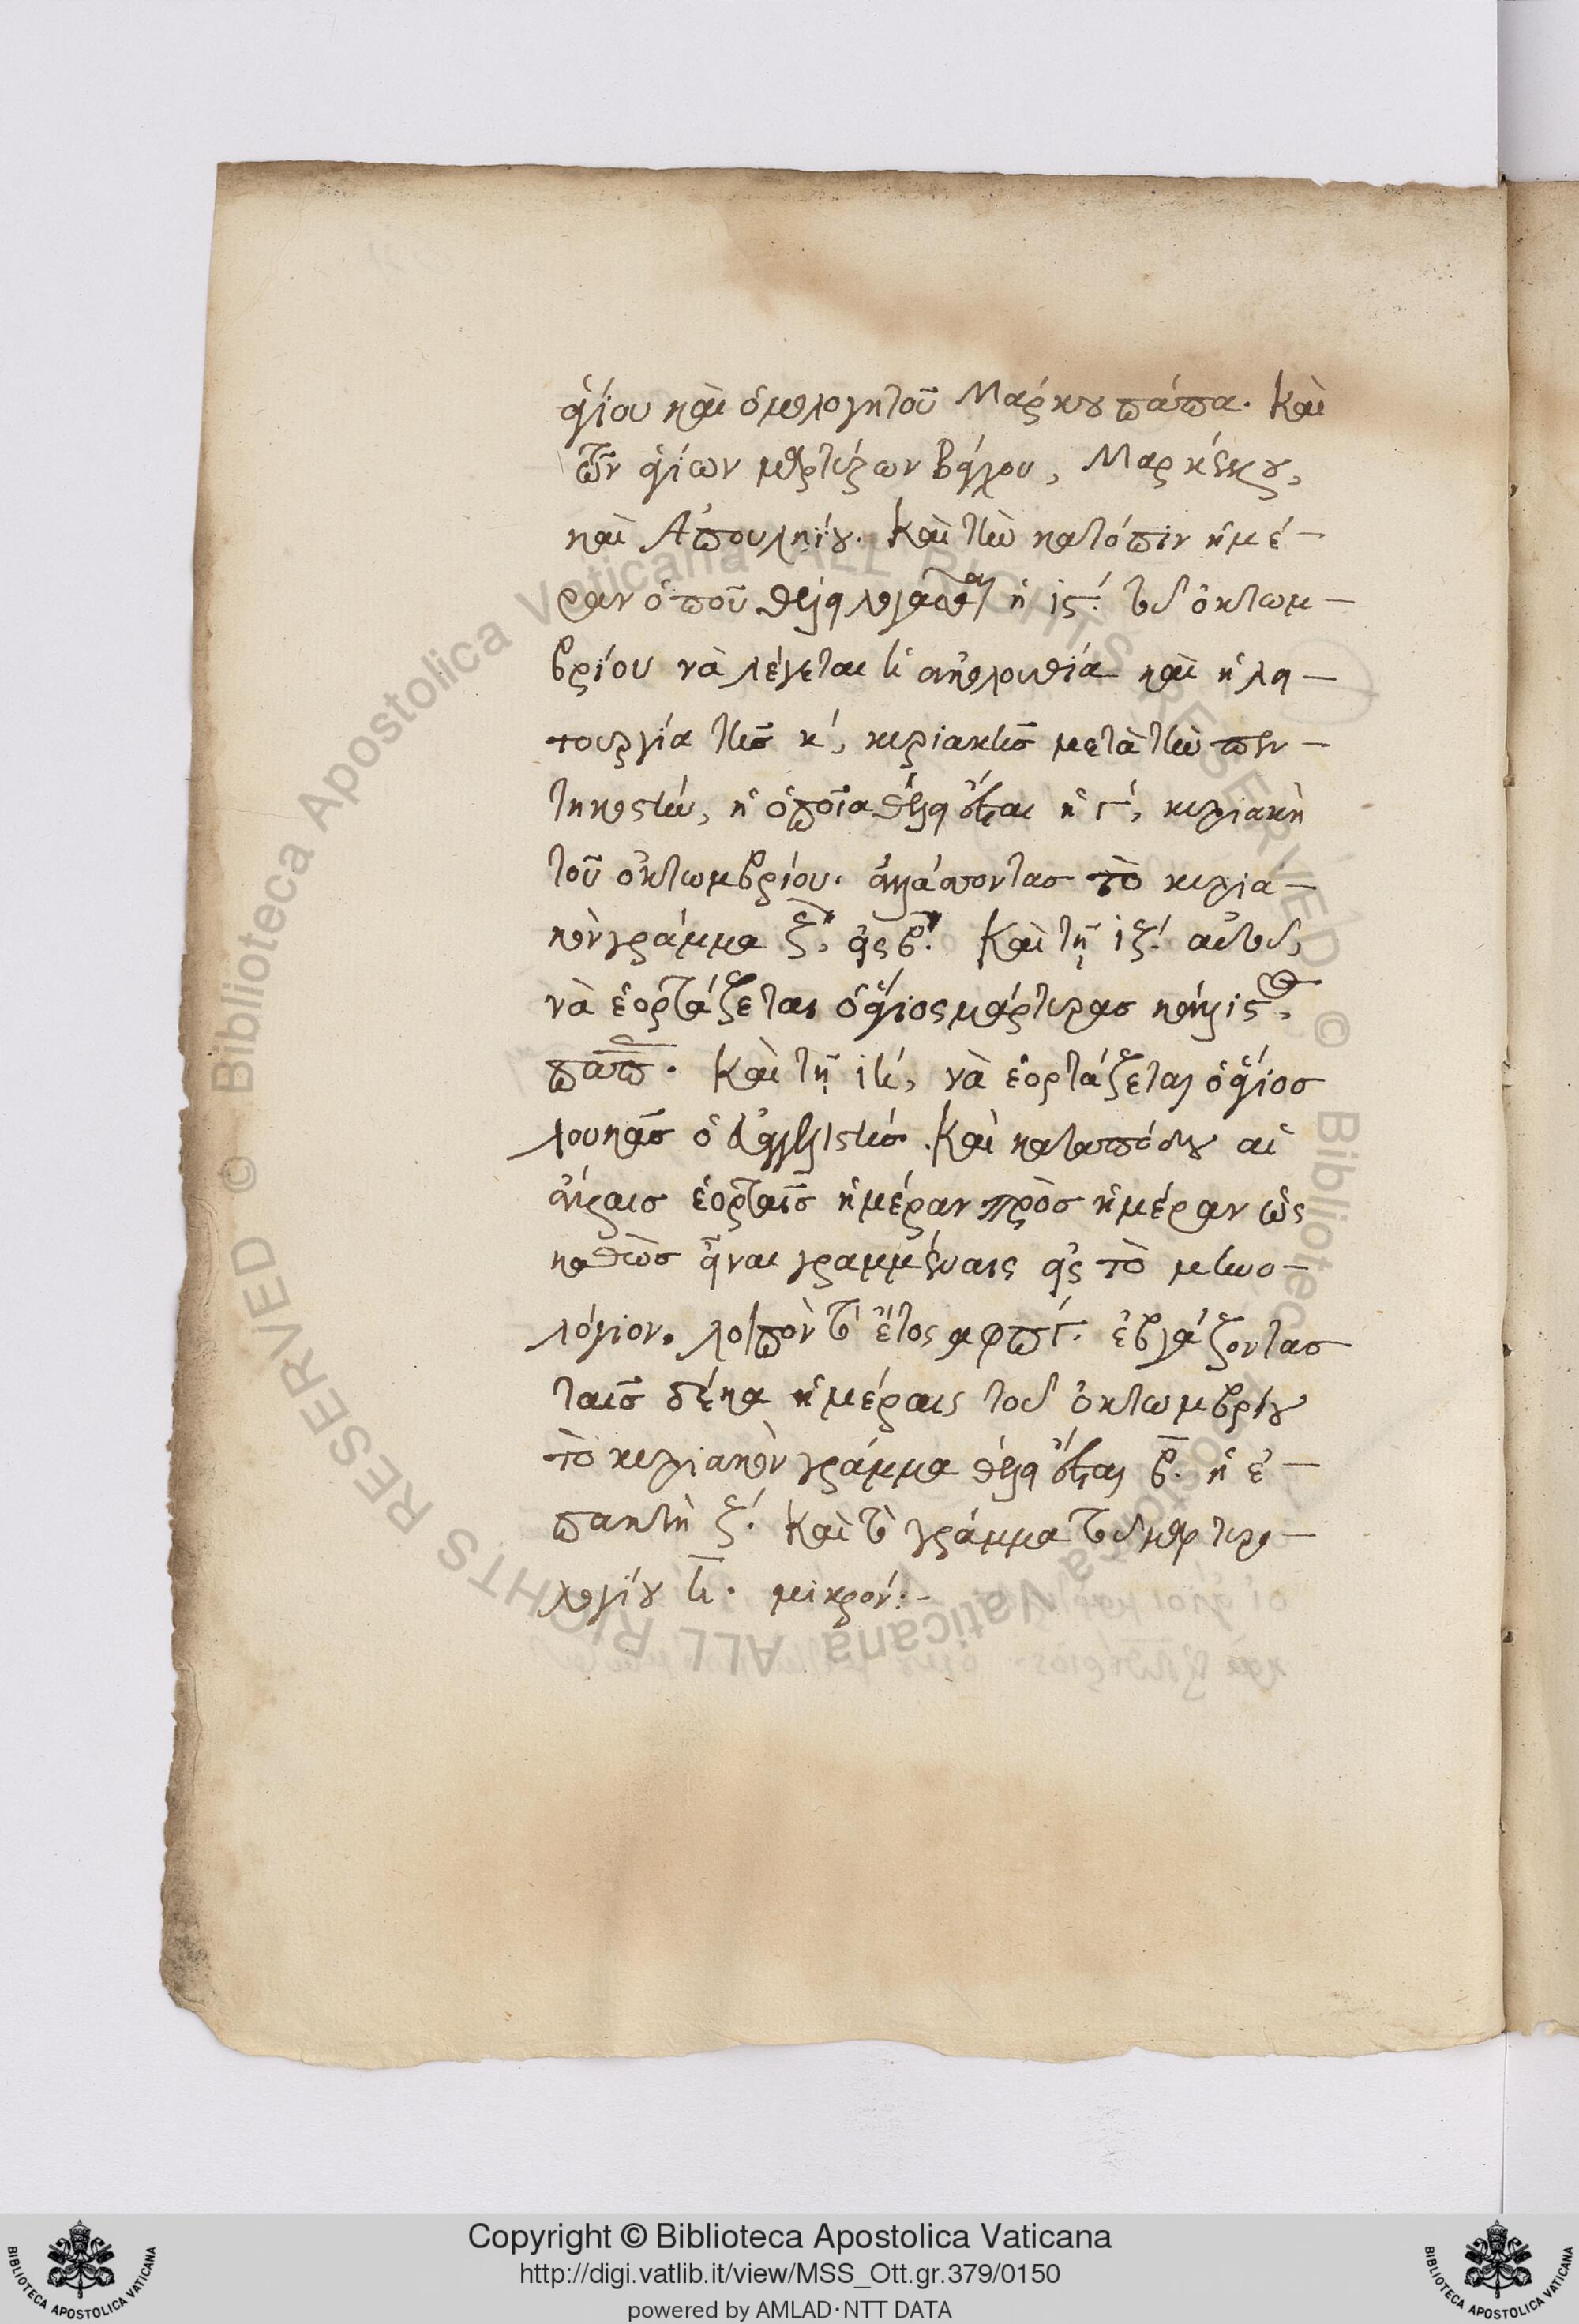 ἁγίου καὶ ὁμολογητοῦ Μάρκου πάπα. Καὶ
τῶν ἁγίων μαρτύρων Βάκχου, Μαρκέλλου,
καὶ Ἀπουληΐου. Καὶ τὴν κατόπιν ἡμέ-
ραν ὁποῦ θέλει λογᾶσθαι ἡ ιϛ΄. τοῦ ὀκτωμ-
βρίου νὰ λέγεται ἡ ἀκολουθία καὶ ἡ λει-
τουργία τῆς κ΄, κυριακῆς μετὰ τὴν πεν-
τηκοστήν, ἡ ὁποῖα θέλει ὄσται ἡ γ΄, κυριακὴ
τοῦ ὀκτωμβρίου. ἀλλάσσοντας τὸ κυρια-
κὸν γράμμα ζ, εἰς β. Καὶ τῇ ιζ΄. αὐτοῦ,
νὰ ἑορτάζεται ὁ ἅγιος μάρτυρας Κάλλιστος,
πάπας. Καὶ τῇ ιη΄, νὰ ἑορτάζεται ὁ ἅγιος
λουκᾶς ὁ εὐαγγελιστής. Καὶ καταπόδου αἱ
ἄλλαις ἑορταῖς ἡμέραν πρὸς ἡμέραν ὡς
καθὼς εἶναι γραμμέναις εἰς τὸ μηνο-
λόγιον. λοιπὸν τὸ ἔτος αφπγ΄. ἐβγάζοντας
ταῖς δέκα ἡμέραις τοῦ ὀκτωμβρίου
τὸ κυριακὸν γράμμα θέλει ὄσται β. ἡ ἐ-
πακτὴ ζ΄. Καὶ τὸ γράμμα τοῦ μαρτυρο-
λογίου η. μικρόν:-
Copyright © Biblioteca Apostolica Vaticana
http://digi.vatlib.it/view/MSS_Ott.gr.379/0150
powered by AMLAD·NTT DATA